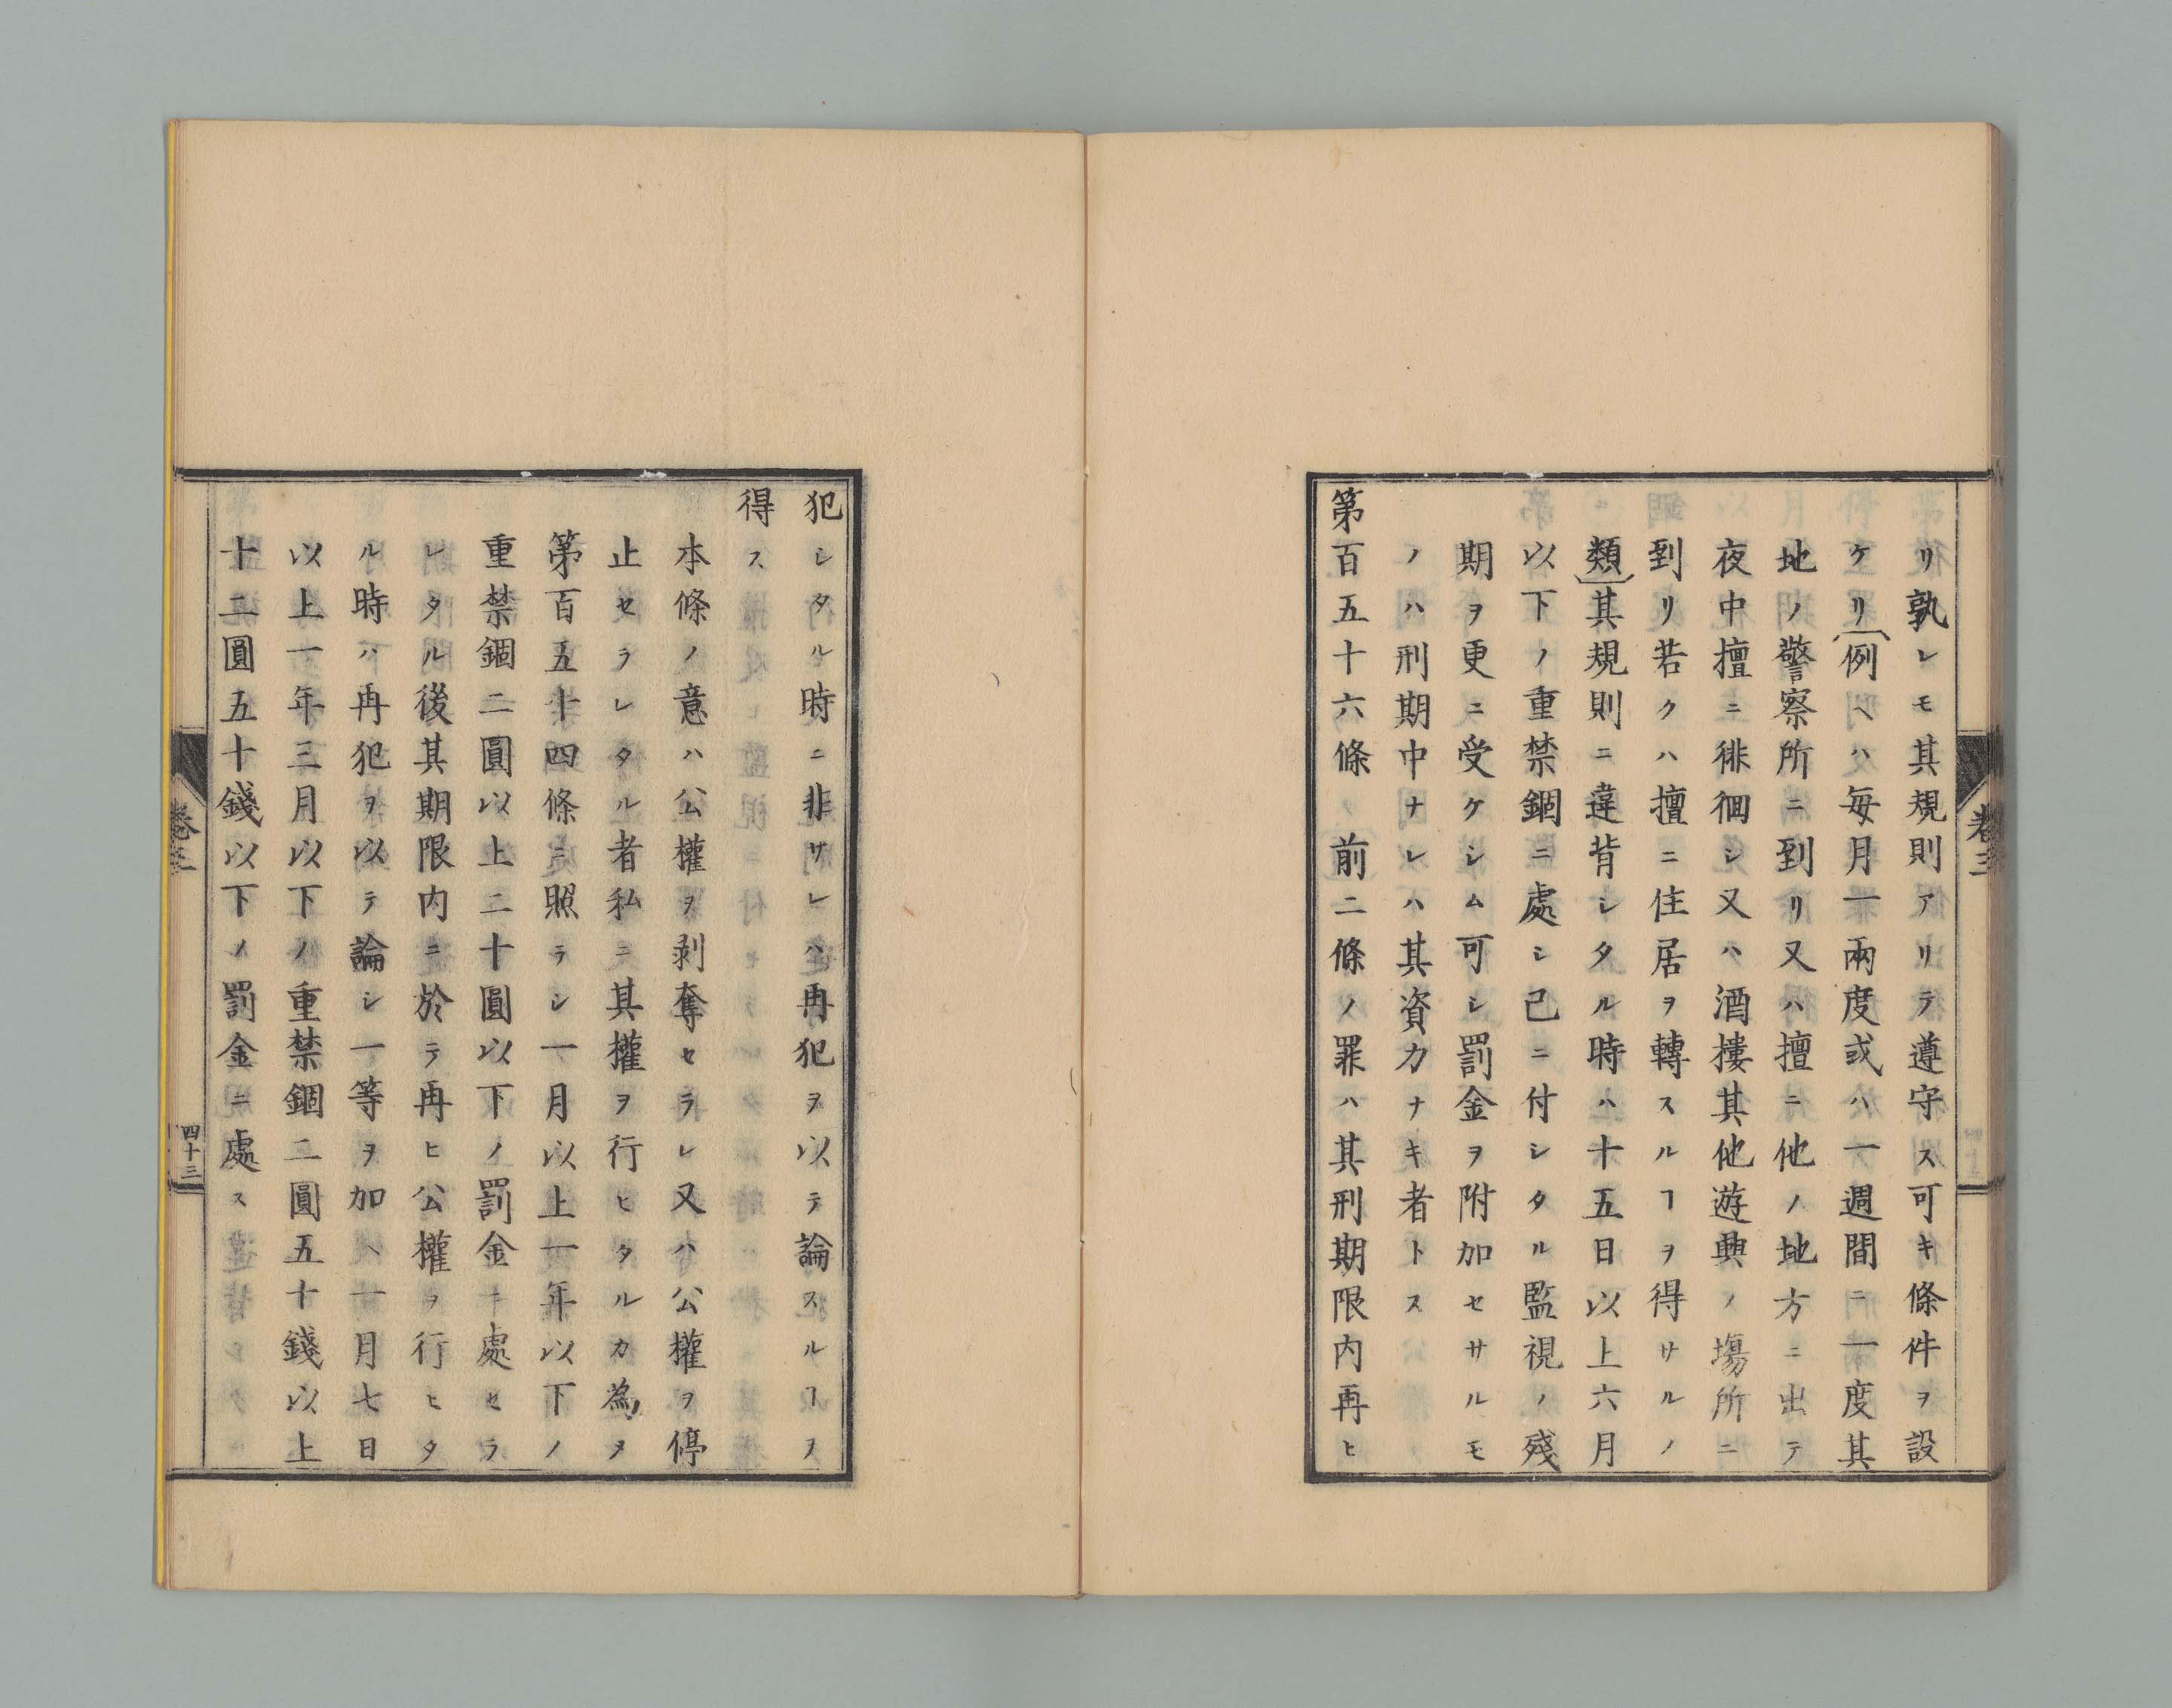 リ孰レモ其規則アリテ遵守ス可キ條件ヲ設
ケリ(例ヘハ毎月一兩度或ハ一週間ニ一度其
地ノ警察所ニ到リ又ハ擅ニ他ノ地方ニ出テ
夜中擅ニ徘徊シ又ハ酒摟其他遊興ノ塲所ニ
到リ若クハ擅ニ住居ヲ轉スルヿヲ得サルノ
類)其規則ニ違背シタル時ハ十五日以上六月
以下ノ重禁錮ニ處シ已ニ付シタル監視ノ殘
期ヲ更ニ受ケシム可シ罰金ヲ附加セサルモ
ノハ刑期中ナレハ其資力ナキ者トス
第百五十六條 前二條ノ罪ハ其刑期限内再ヒ
卷三
犯シタル時ニ非サレハ再犯ヲ以テ論スルヿヲ
得ス
本條ノ意ハ公權ヲ剥奪セラレ又ハ公權ヲ停
止セラレタル者私ニ其權ヲ行ヒタルカ為メ
第百五十四條ニ照ラシ一月以上一年以下ノ
重禁錮二圓以上二十圓以下ノ罰金ニ處セラ
レタル後其期限内ニ於テ再ヒ公權ヲ行ヒタ
ル時ハ再犯ヲ以テ論シ一等ヲ加ヘ一月七日
以上一年三月以下ノ重禁錮二圓五十錢以上
十二圓五十錢以下ノ罰金ニ處ス
卷三
四十三